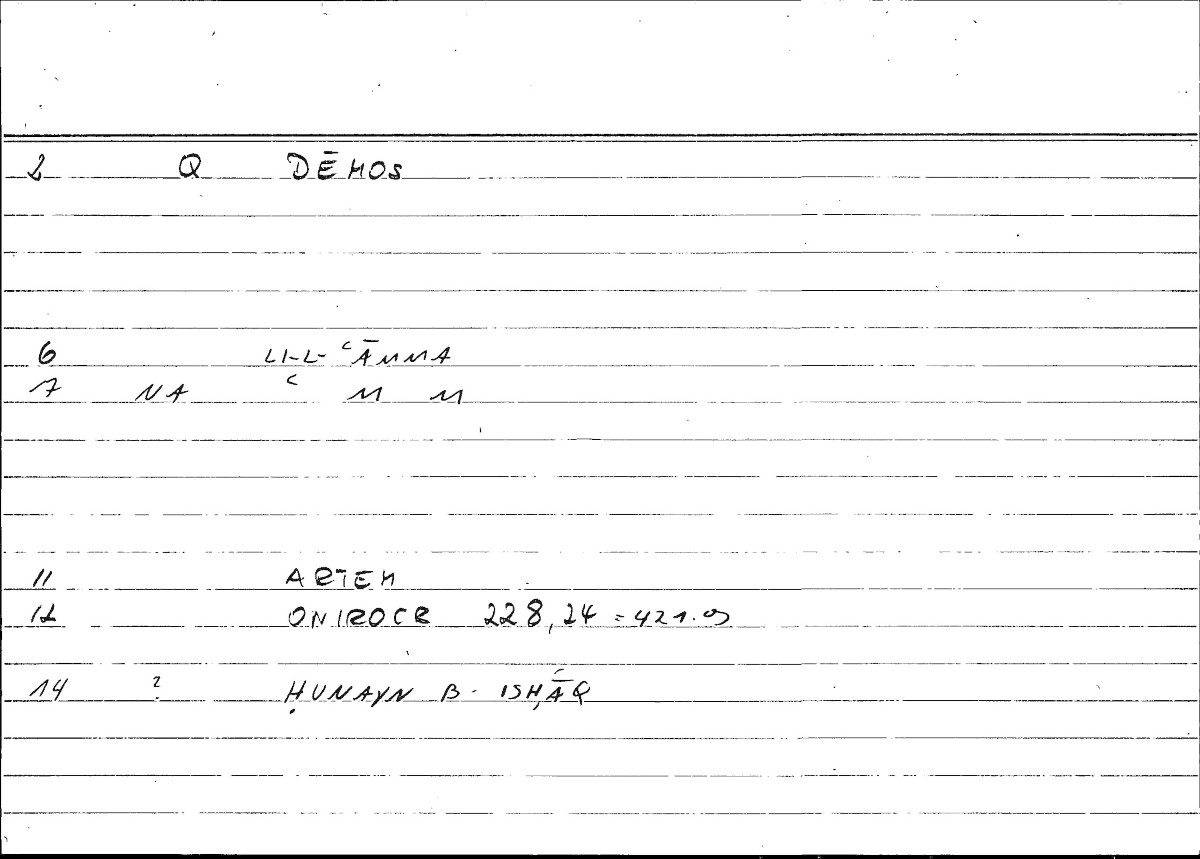 2 Q DĒMOS
6 LI-L-ʿĀMMA
7 NA ʿ M M
11 ARTEM
12 ONIROCR 228,24 = 421.9
14 ? ḤUNAYN B. ISḤĀQ